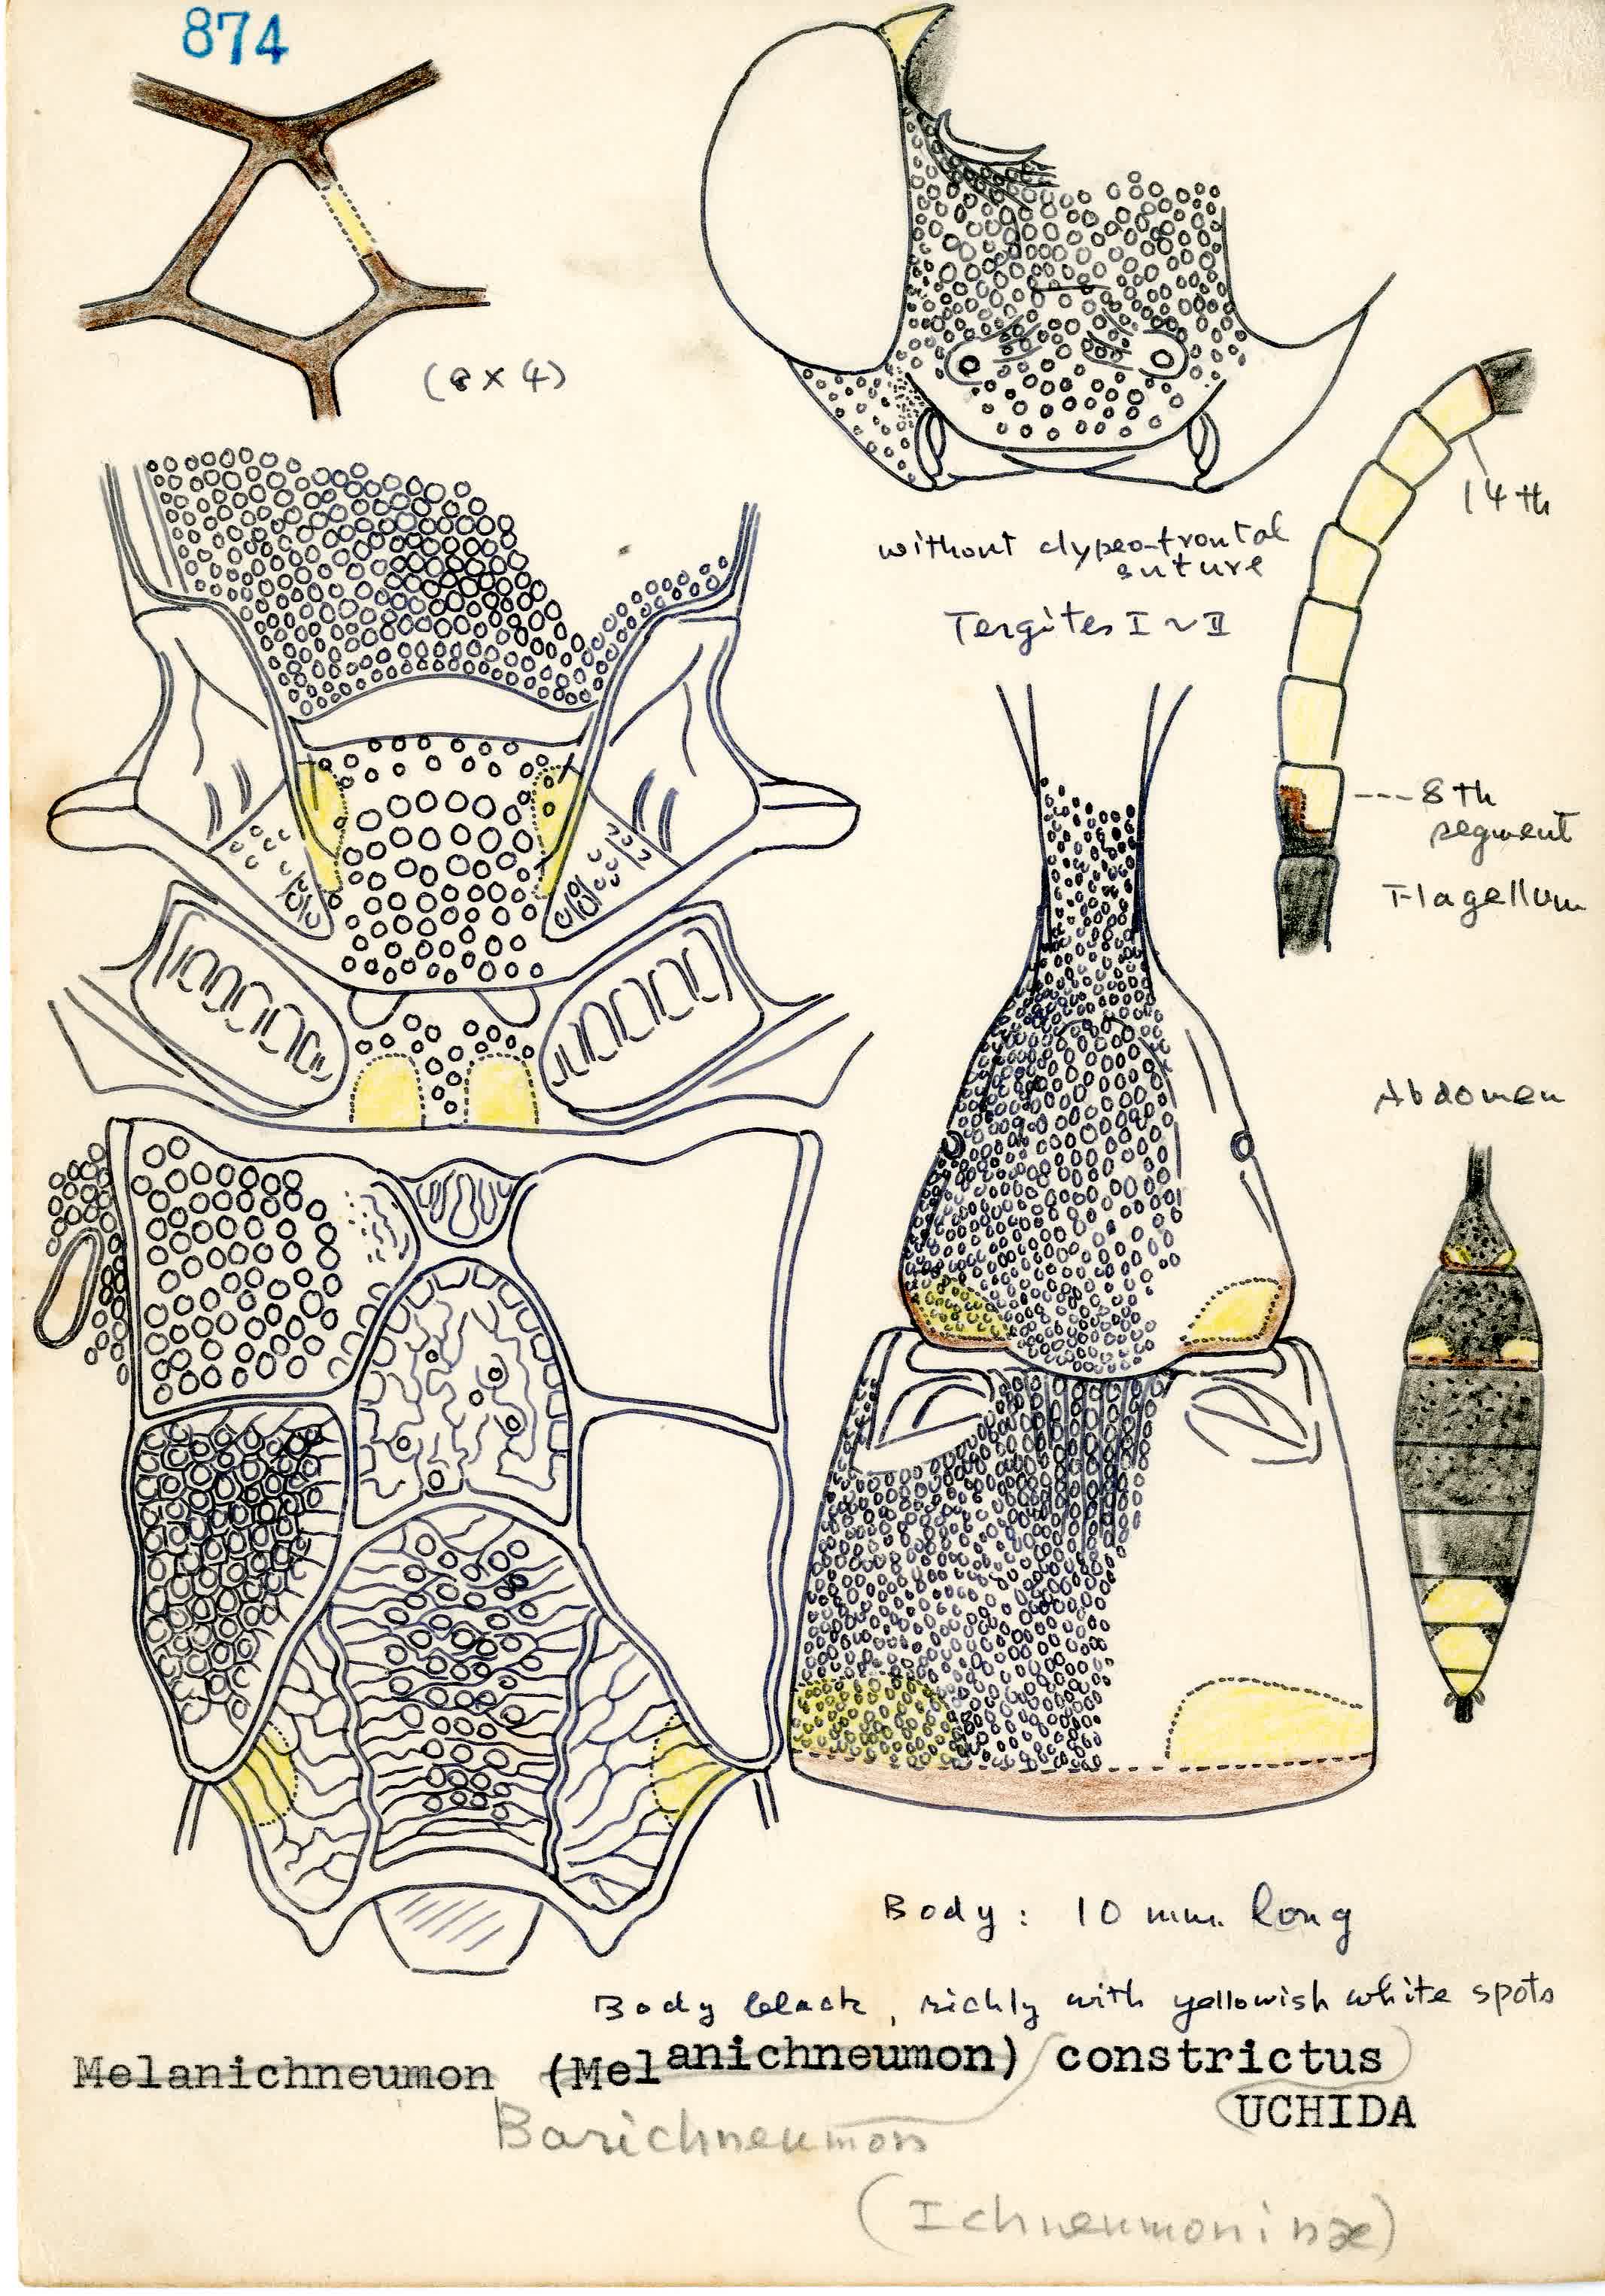 874
(8 × 4)
without clypeo-frontal
suture
Tergites I ~ II
14 th
---8 th
segment
Flagellum
Abdomen
Body: 10 mm. long
Body black, richly with yellowish white spots
Melanichneumon (Melanichneumon) constrictus
UCHIDA
Barichneumon
(Ichneumoninæ)